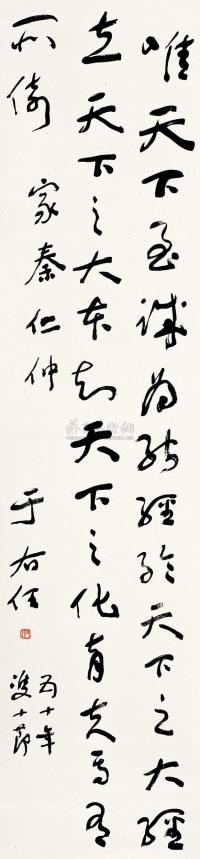 唯天下至誠為能經綸天下之大經
立天下之大本知天下之化育夫焉有
所倚
家秦仁仲
于右任
五十年
雙十節